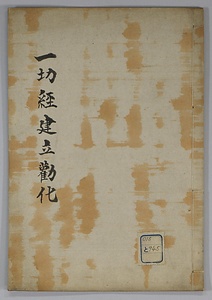 一切経建立勸化